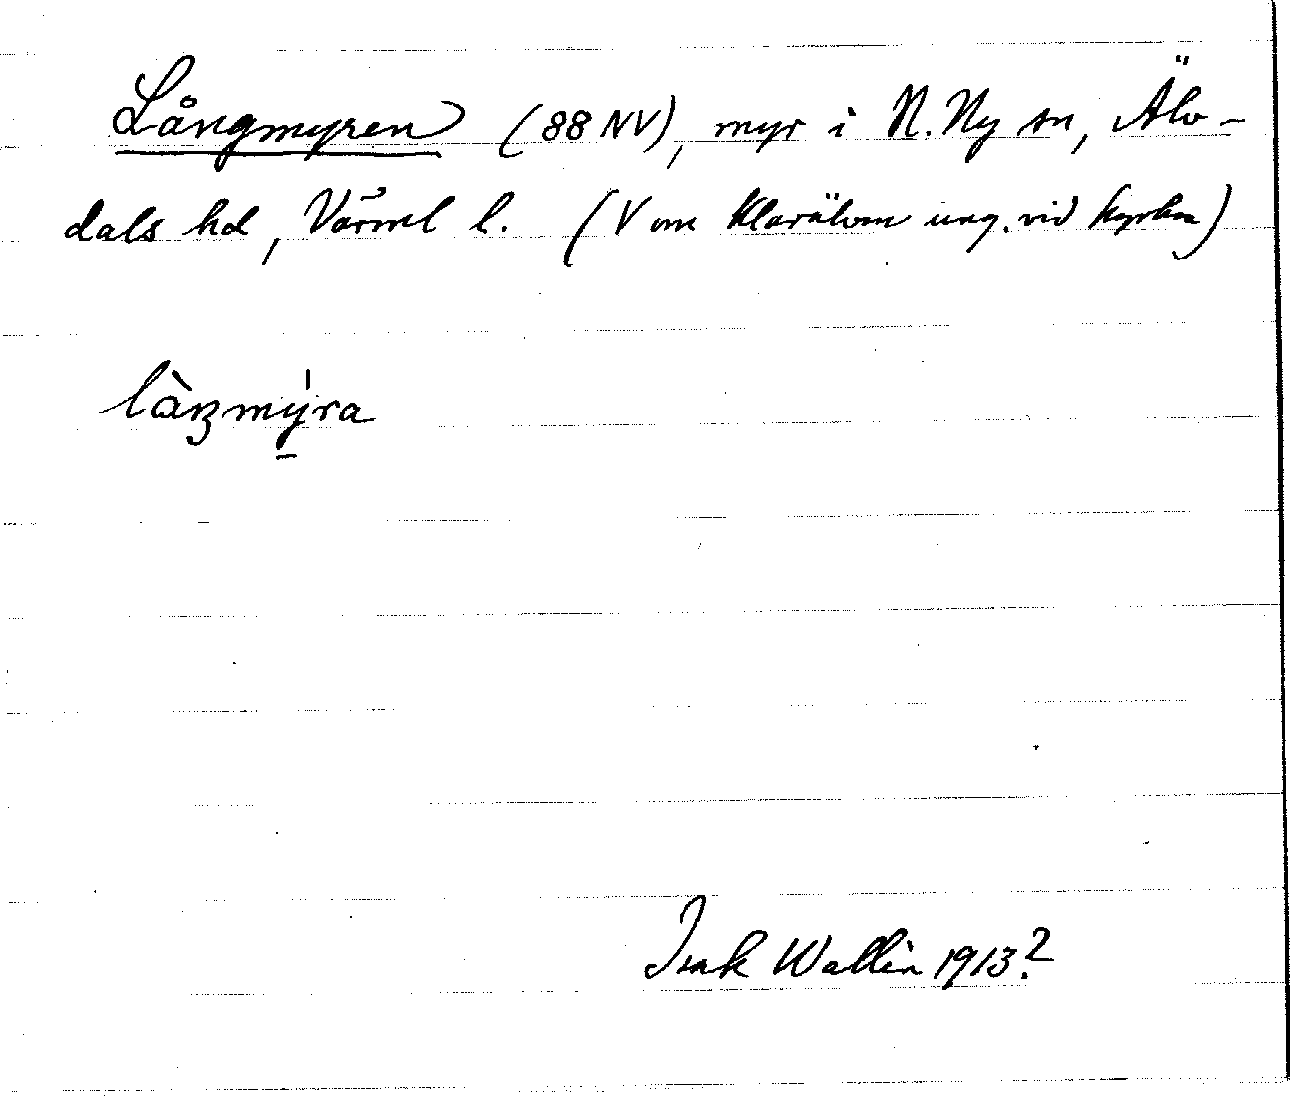 Långmyren (88 NV), myr i N. Ny sn, Älv-
dals hd, Värml l. (V om Klarälven ung. vid kyrkan)
làŋmy̠ra
Isak Wallin 1913?